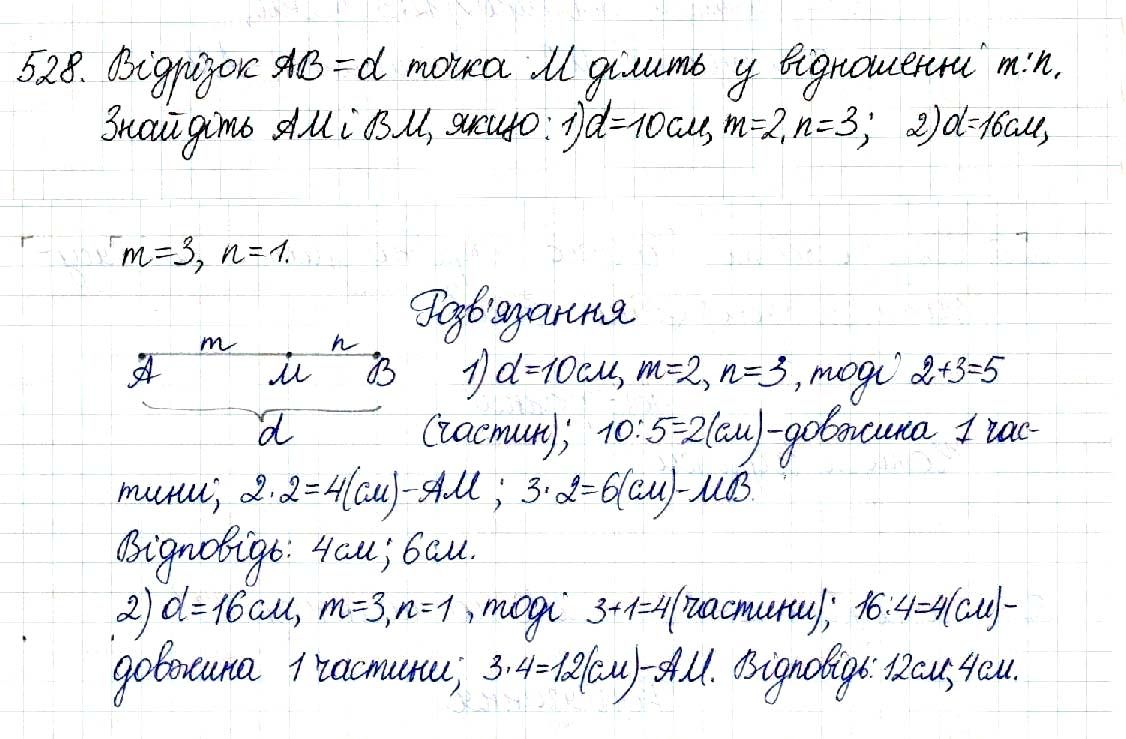 528. Відрізок AB=d точка M ділить у відношенні m:n.
Знайдіть AM і BM, якщо: 1) d=10см, m=2, n=3; 2) d=16см,
m=3, n=1.
Розв'язання
m n
A M B
d
1) d=10см, m=2, n=3, тоді 2+3=5
(частин); 10:5=2(см)-довжина 1 час-
тини; 2·2=4(см)-AM; 3·2=6(см)-MB.
Відповідь: 4см; 6см.
2) d=16см, m=3, n=1, тоді 3+1=4(частини); 16:4=4(см)-
довжина 1 частини; 3·4=12(см)-AM. Відповідь: 12см, 4см.